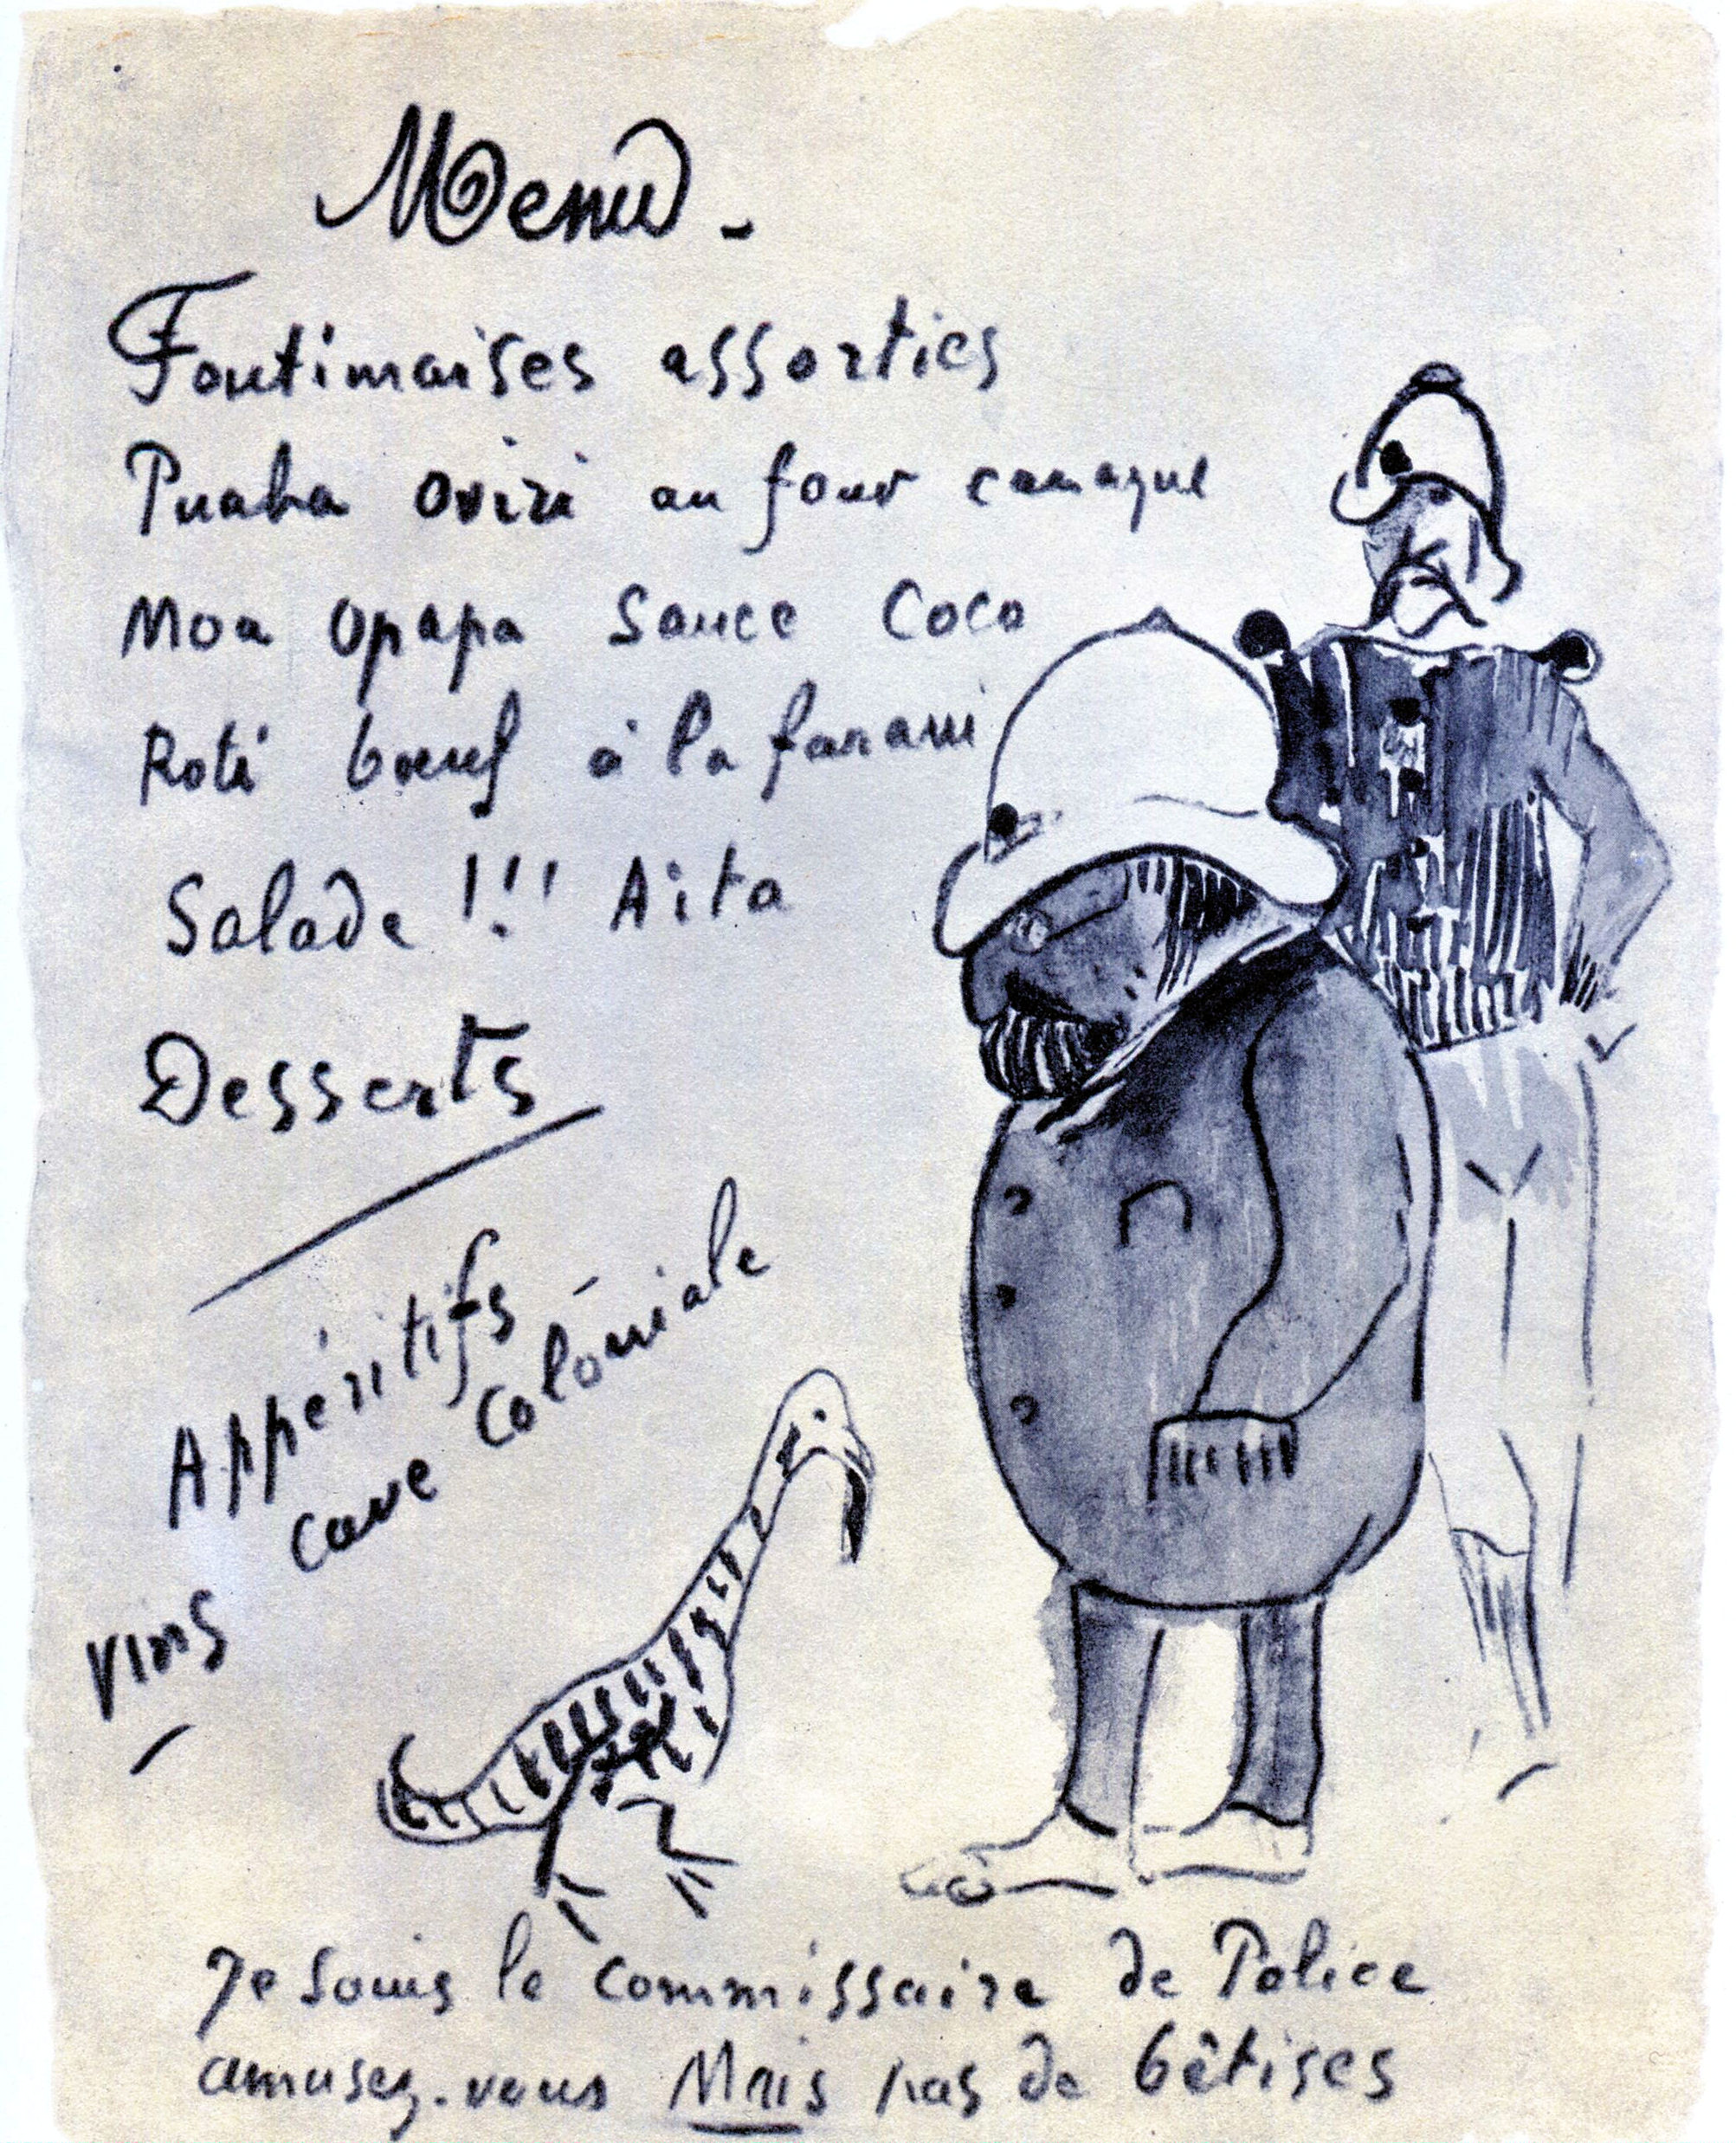 Menu -
Foutimaises assorties
Puaha oviri au four canaque
Moa Opapa Sauce Coco
Roti bœuf à la farani
Salade !!! Aita
Desserts
Appéritifs -
cave coloniale
vins
Je souis le commissaire de Police
amusez-vous Mais pas de bêtises